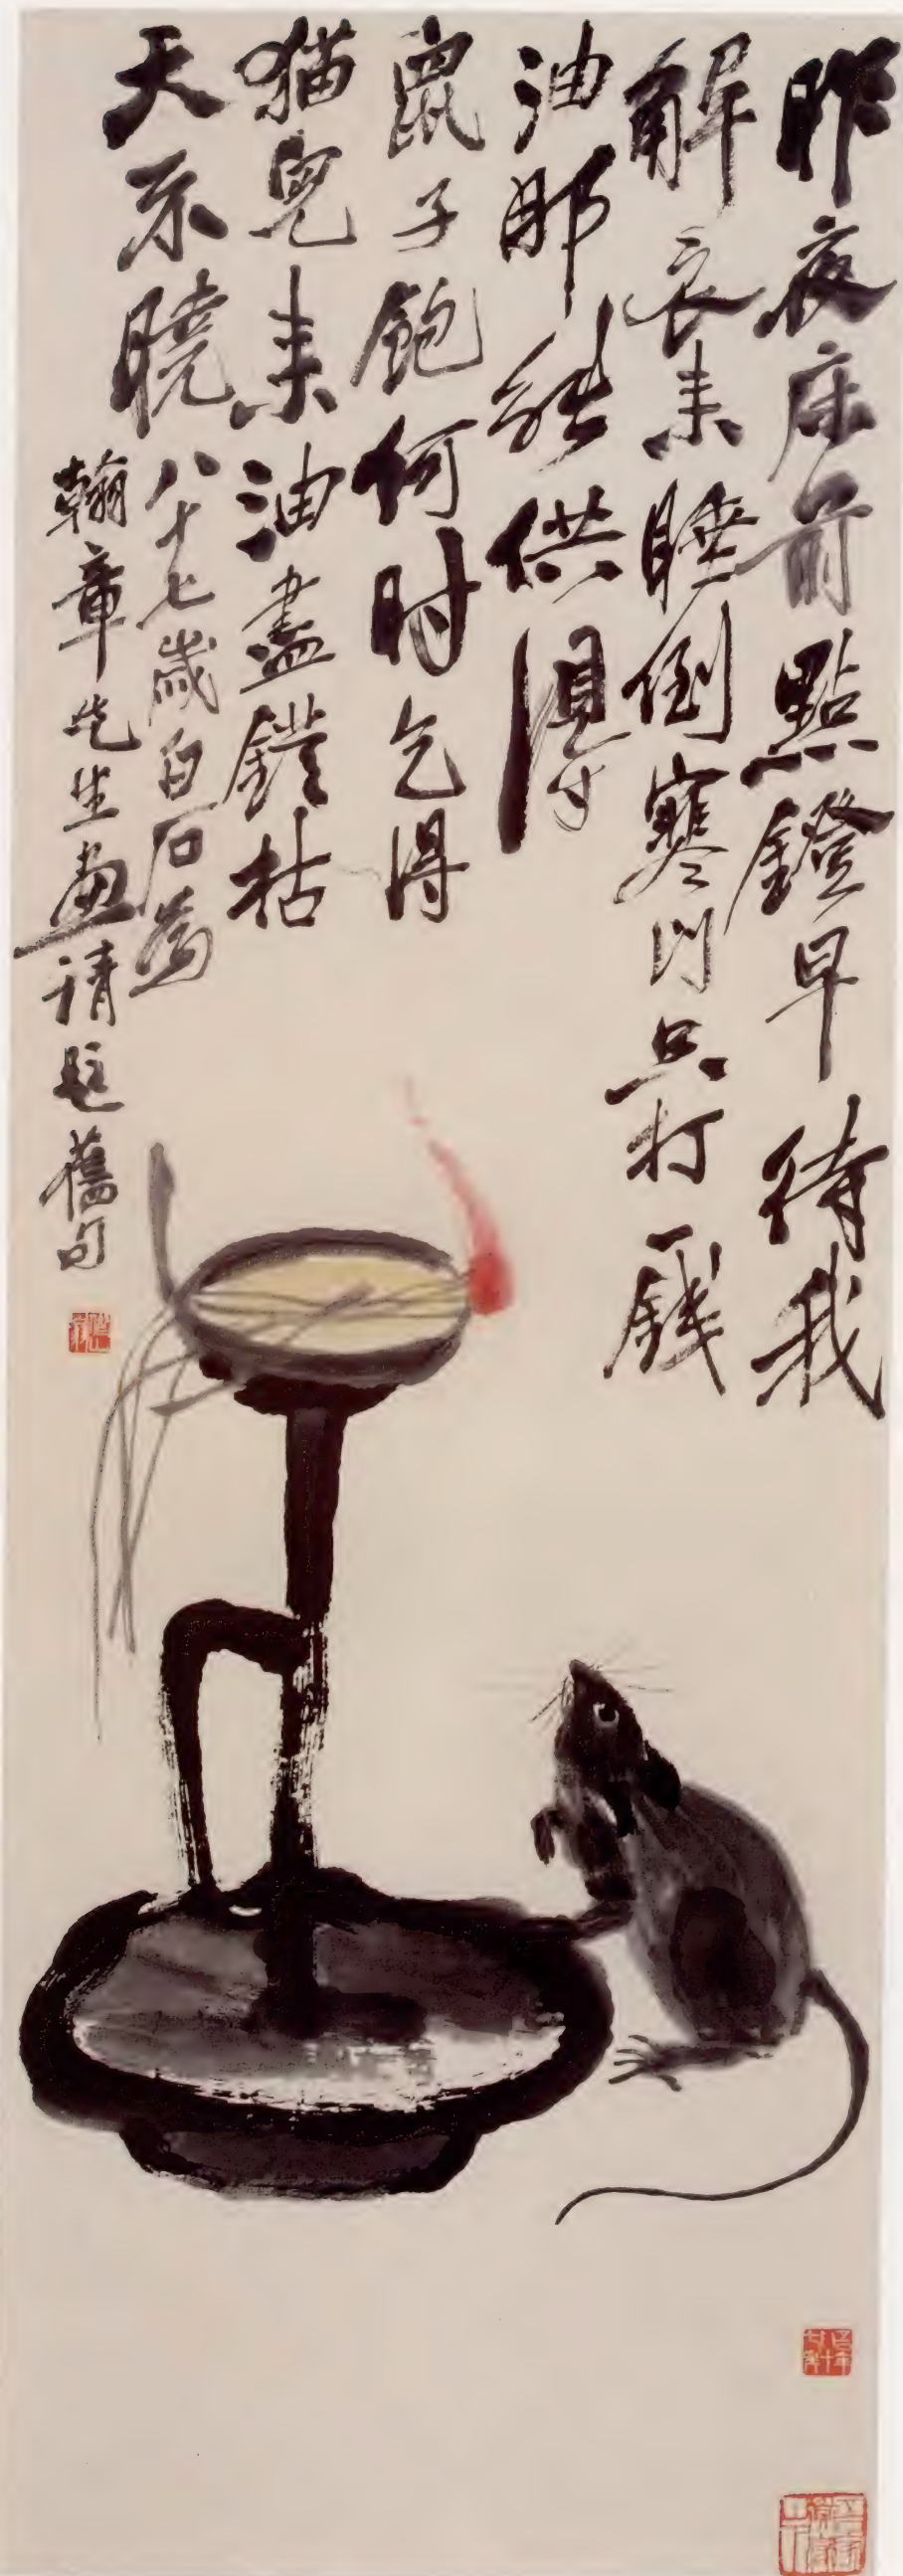 昨夜床前點鐙早待我
解衣来睡倒寒门只打一錢
油那能供得
鼠子飽何时乞得
猫兒来油盡鐙枯
天不曉
八十七歲白石為
翰章先生畫请題舊句